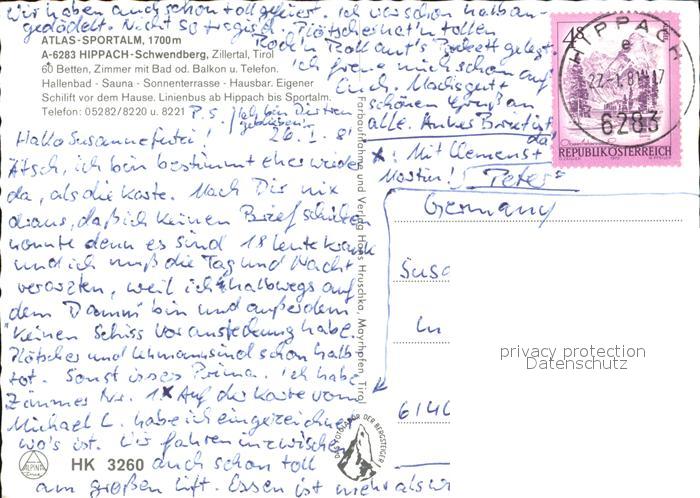 Wir haben auch schon toll gefeiert. Ich war schon halban-
gedödelt. Nicht so tragisch. Plötscher hat'n tollen
Rock'n Roll auf's Parkett gelegt.
Ich freue mich schon auf
Euch. Machs gut
schönen Gruß an
alle.
da
*: Mit Clemens +
Martin! Peter
ATLAS-SPORTALM, 1700m
A-6283 HIPPACH-Schwendberg, Zillertal, Tirol
60 Betten, Zimmer mit Bad od. Balkon u. Telefon.
Hallenbad - Sauna - Sonnenterrasse - Hausbar. Eigener
Schilift vor dem Hause. Linienbus ab Hippach bis Sportalm.
Telefon: 05282/8220 u. 8221
P.S. Ich bin
26.I.81
Hallo Susanne
Ätsch, ich bin bestimmt eher wieder
da, als die Karte. Mach Dir nix
draus, daß ich keinen Brief schicken
konnte denn es sind 18 Leute krank
und ich muß die Tag und Nacht
verarzten, weil ich halbwegs auf
dem Damm bin und außerdem
keinen Schiss vor ansteckung habe.
Plötscher und Uhmann sind schon halb
tot. Sonst isses Prima. Ich habe
Zimmer Nr. 1* Auf der Karte vom
Michael L. habe ich eingezeichnet
wo's ist. Wir fahren inzwischen
auch schon toll
am großen Lift. Essen ist mehr als
HK 3260
ALPINA
Farbaufnahme und Verlag Hans Hruschka, Mayrhofen, Tirol
DAS TOLMADOR DER BERGSTEIGER
4S
REPUBLIK ÖSTERREICH
HIPPACH
e
6283
Germany
Susa
In
privacy protection
Datenschutz